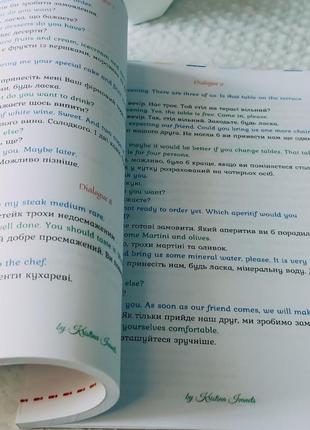 би зробити замовлення
do you want?
, що бажаєте?
desserts do you have?
десерти?
fruits and cream, icecream
фрукти із вершками, морозиво
bring me your special cake and
принесіть мені Ваш фірмовий
ласка.
do you want to drink?
бажаєте щось випити?
of white wine. Sweet. And two
вина. Солодкого. І дві
else?
Maybe later.
Можливо пізніше.
Dialogue 8
my steak medium rare.
стейк трохи недосмажений.
well done. You should taste it.
добре просмажений. Ви
to the chef.
кухареві.
by Kristina Ivanets
Dialogue 9
evening. There are three of us. Is that table on the terrace
вечір. Нас троє. Той стіл на терасі вільний?
evening. Yes, the table is free. Come in, please.
вечір. Так, стіл вільний. Заходьте, будь ласка.
expecting our friend. Could you bring us one more chair
нашого друга. Не могли б Ви принести нам ще один
maybe it would be better if you change tables. That table
is for four persons.
можливо, було б краще, якщо ви поміняєте столик.
той столик у кутку розрахований на чотирьох осіб.
you want?
бажаєте?
not ready to order yet. Which aperitif would you
готові замовити. Який аперитив ви б порадили
some Martini and olives.
трохи мартіні та оливок.
and bring us some mineral water, please. It is very
принесіть нам, будь ласка, мінеральну воду.
you. As soon as our friend comes, we will make
Як тільки прийде наш друг, ми зробимо
yourselves comfortable.
розташуйтеся зручніше.
by Kristina Ivanets